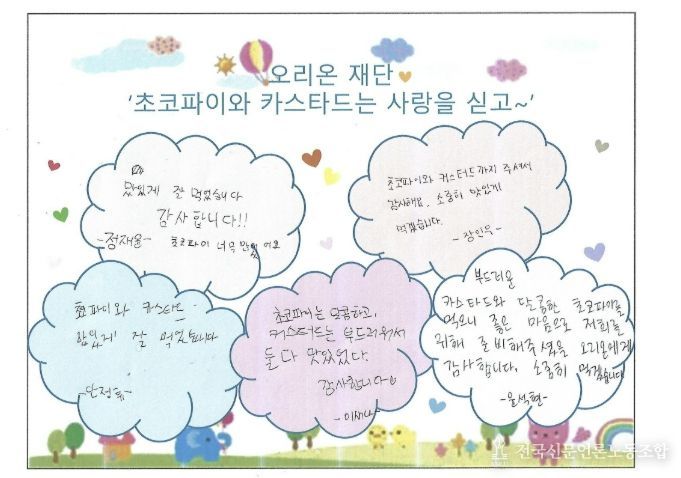 오리온 재단
'초코파이와 카스타드는 사랑을 싣고~'
맛있게 잘 먹었습니다
감사합니다!!
-정재울- 초코파이 너무 맛있어요
초코파이와 커스터드까지 주셔서
감사해요. 소중히 맛있게
먹겠습니다.
- 장인우 -
초코파이와 카스타드
맛있게 잘 먹었습니다
초코파이는 달콤하고,
커스터드는 부드러워서
둘 다 맛있었다.
감사합니다
부드러운
카스타드와 달콤한 초코파이를
먹으니 좋은 마음으로 저희를
위해 준비해주셨을 오리온에게
감사합니다. 소중히 먹겠습니다
-윤석현-
전국신문언론노동조합